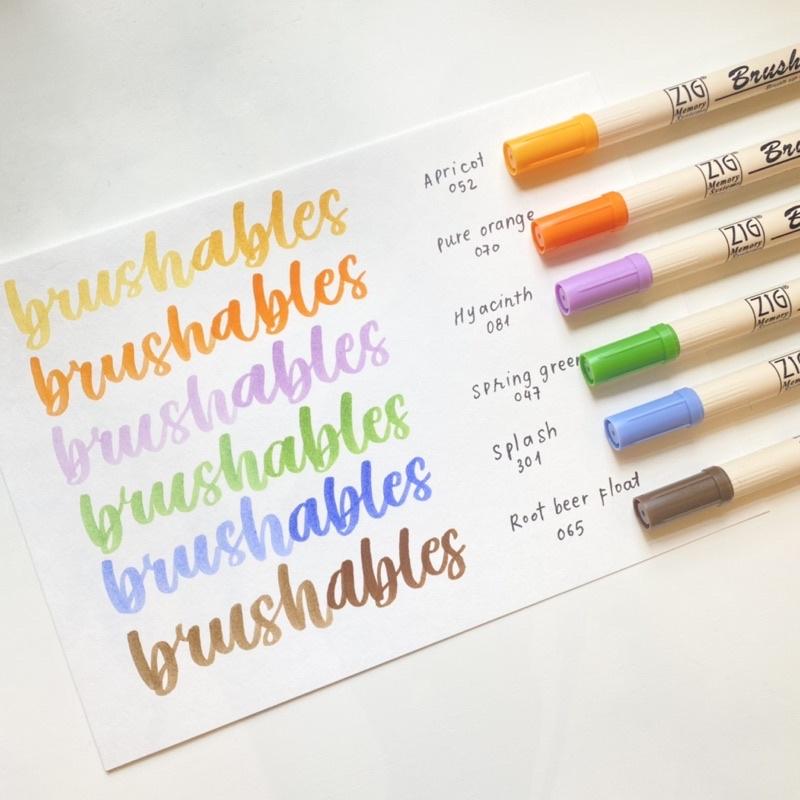 brushables
brushables
brushables
brushables
brushables
brushables
Apricot
052
Pure orange
070
Hyacinth
081
Spring green
047
Splash
301
Root beer Float
065
ZIG
Memory
System
Brush
ZIG
Memory
System
Bru
ZIG
Memory
ZIG
Memory
ZIG
Memory